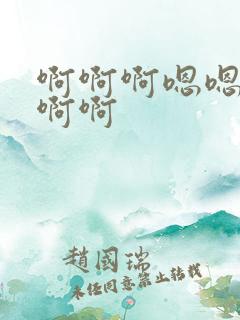 啊啊啊嗯嗯
啊啊
趙國瑞
未经同意禁止转载